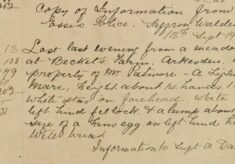 Copy of Information from
Essex Police. Saffron Walden
13th Sept 19
13 Lost last evening from a meadow
at Becket's Farm, Arkesden, the
149 property of Mr Patmore - A Light
Mare, height about 14 hands 1
white star on forehead, white
left hind fetlock & a lump about
size of a hens egg on left hind
Well bred
Information to Supt A Da